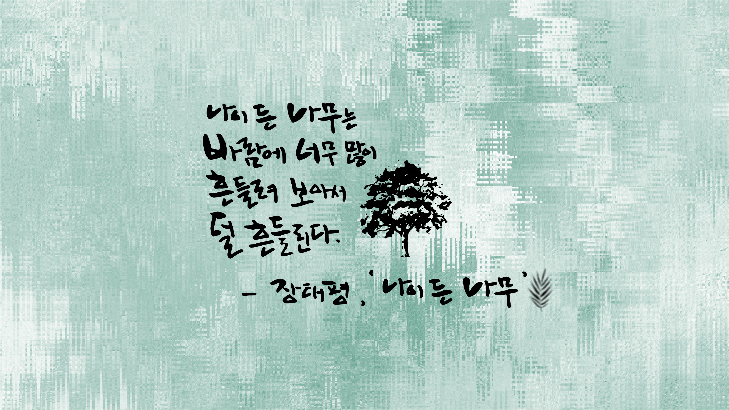 나이 든 나무는
바람에 너무 많이
흔들려 보아서
덜 흔들린다.
- 장태평, '나이 든 나무'